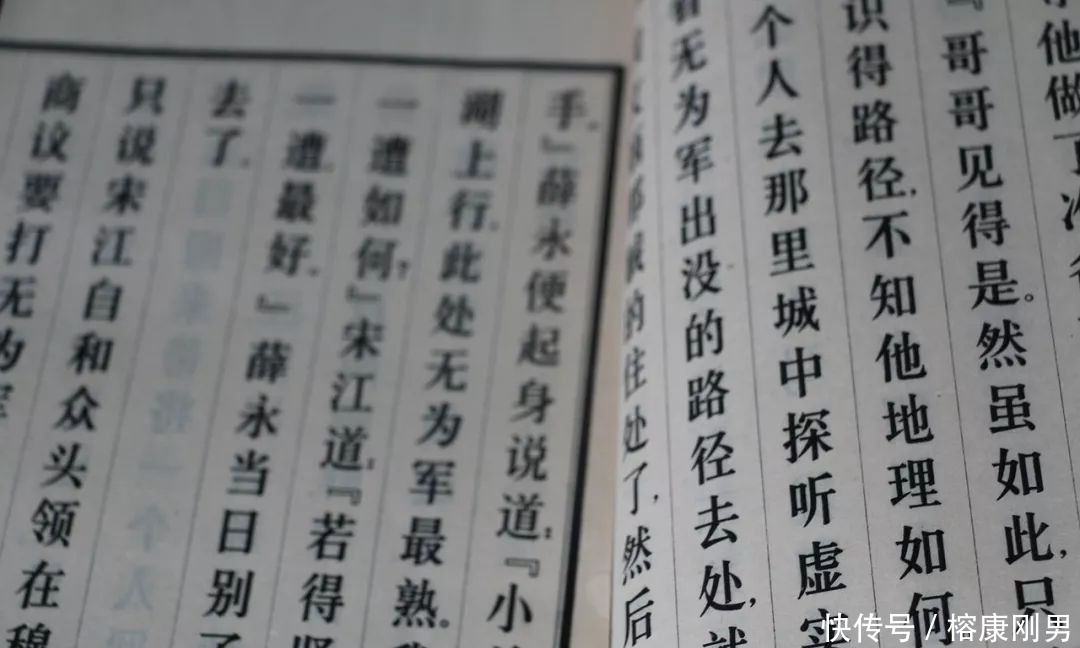 他做了
『哥哥见得是。然虽如此,只
识得路径,不知他地理如何
个人去那里城中探听虚实
看无为军出没的路径去处,就
的住处了,然后
手。』薛永便起身说道:『小
湖上行,此处无为军最熟。我
一遭如何?』宋江道:『若得贤
一遭,最好。』薛永当日别了
去了。
只说宋江自和众头领在穆
商议要打无为军
快传号 / 榕康刚男